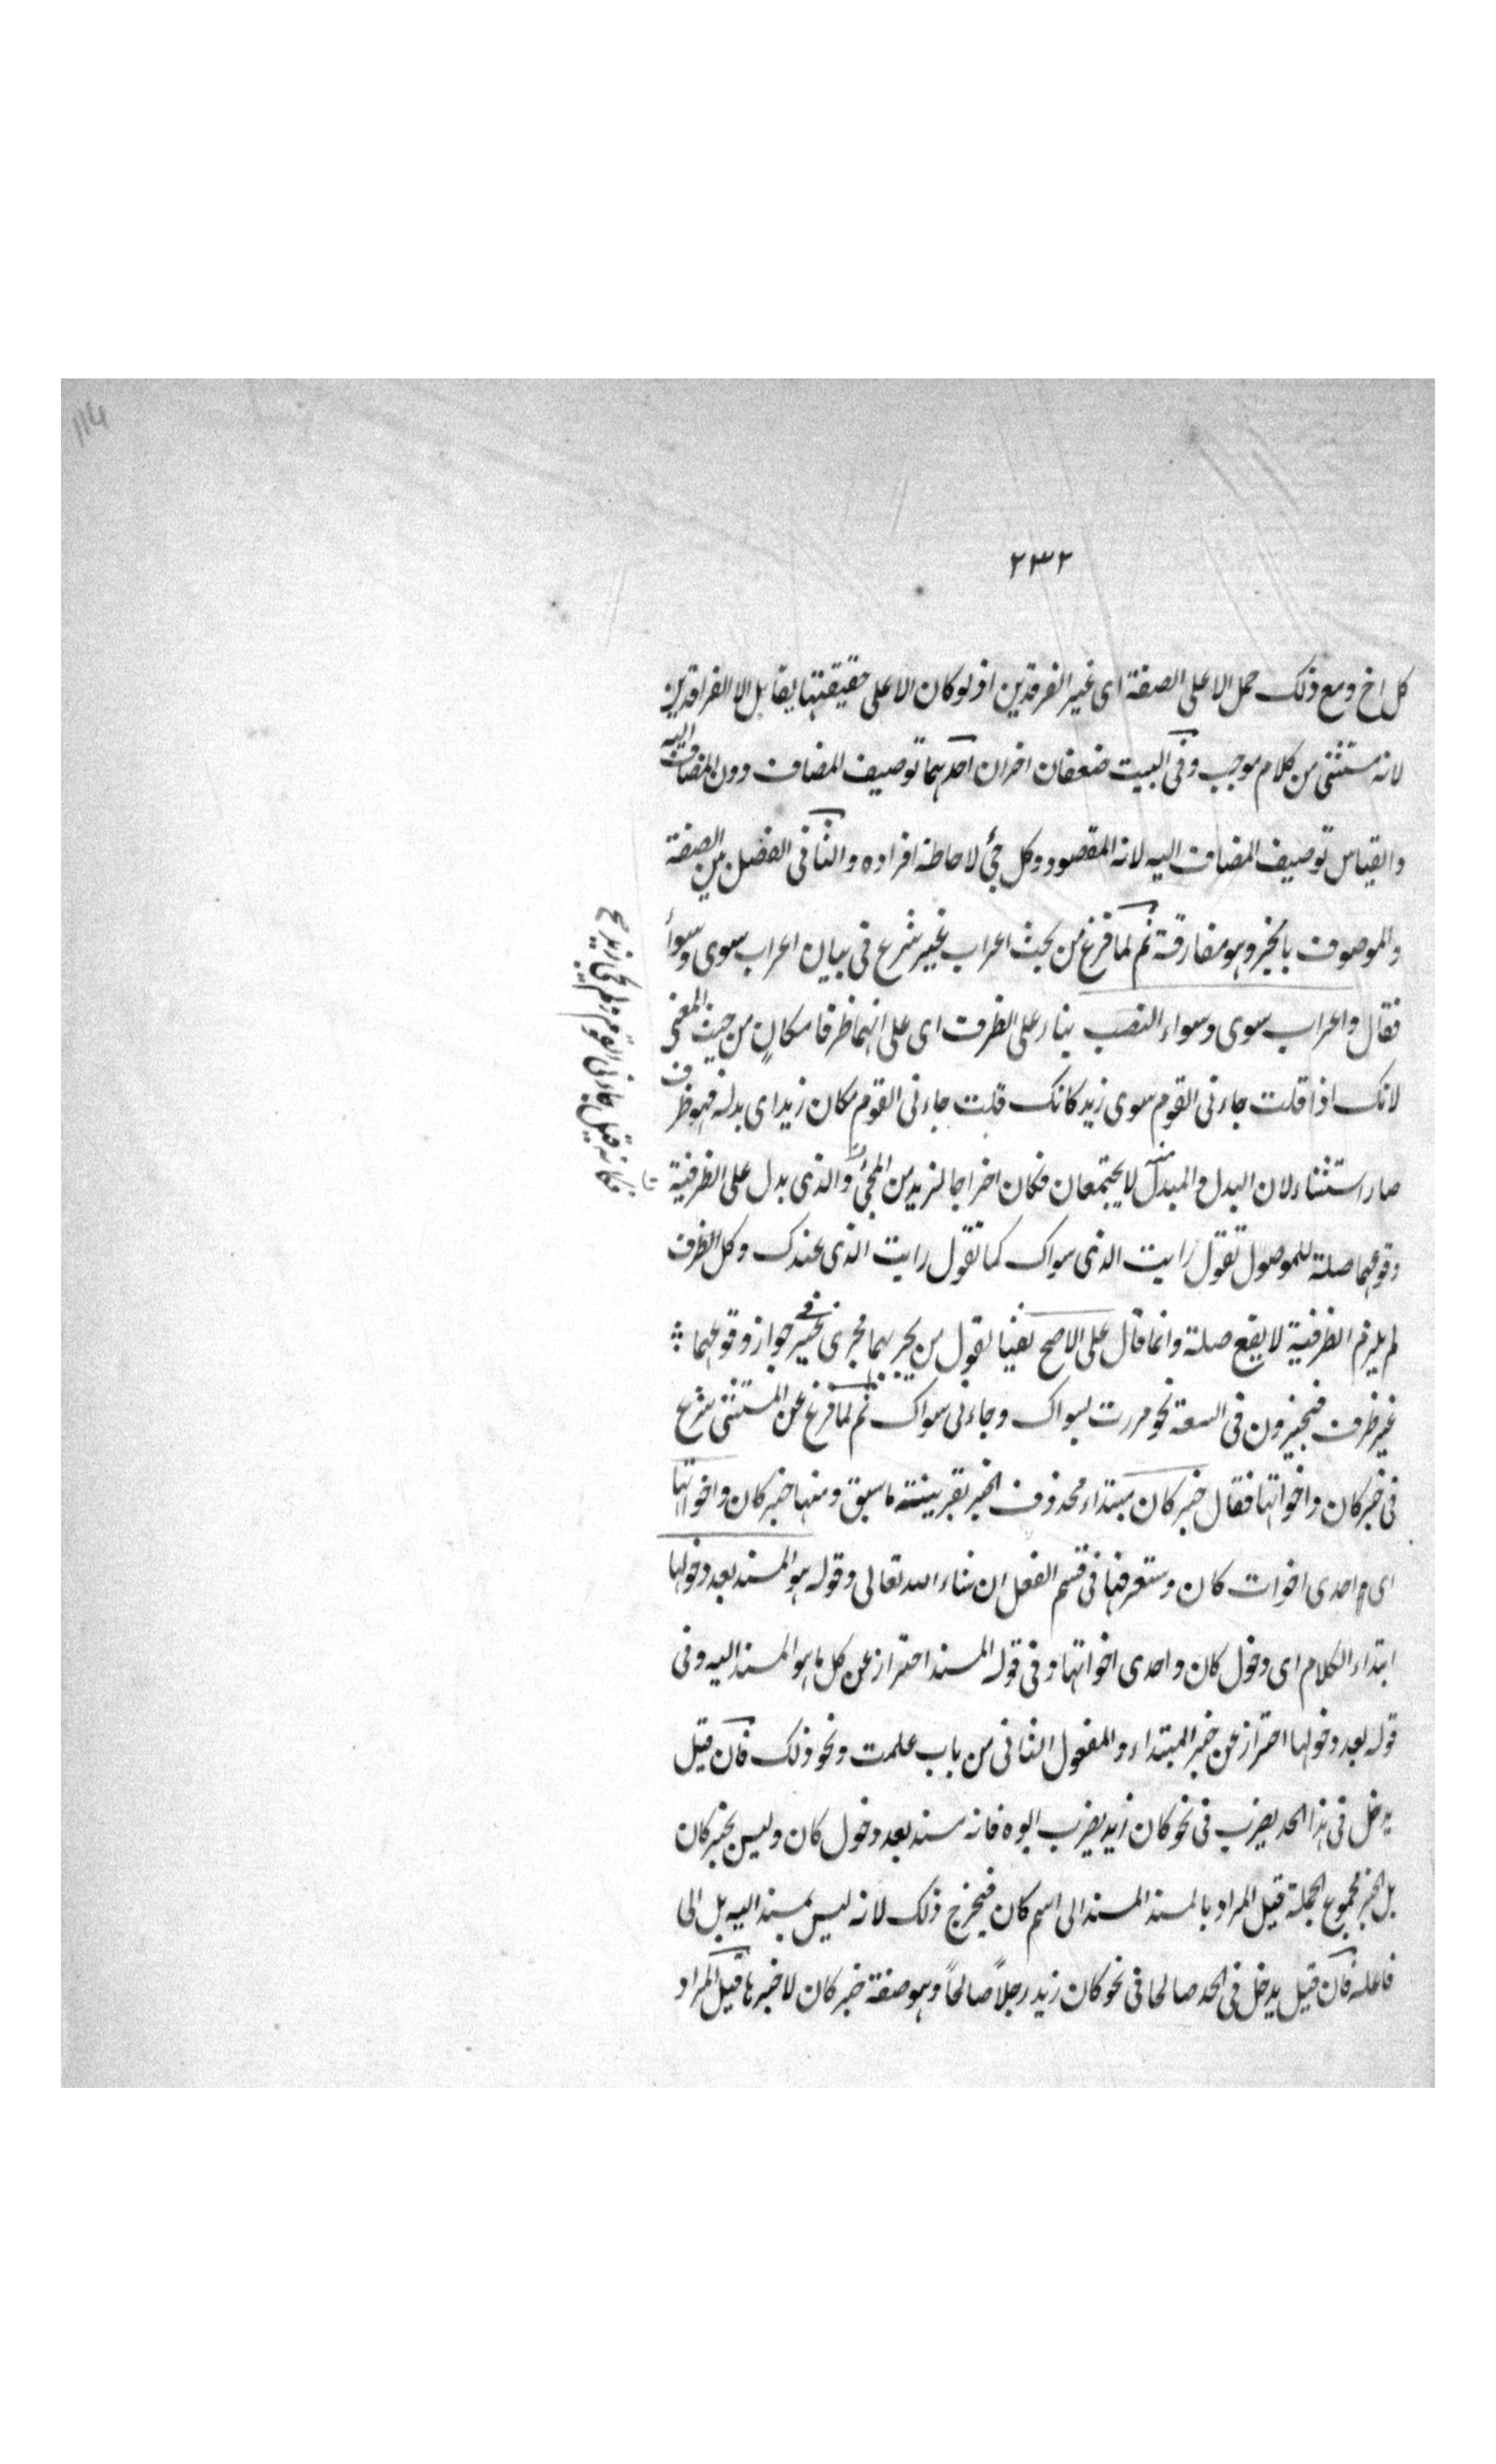 114
٢٣٢
كل اخ ومع ذلك حمل الا على الصفة اى غير الفرقدين اذ لو كان الا على حقيقتها يقابل الا الفرقدين
لانه مستثنى من كلام موجب وفى البيت ضعفان اخران احدهما توصيف المضاف دون المضاف اليه
والقياس توصيف المضاف اليه لانه المقصود وكل جئ لاحاطة افراده والثانى الفصل بين الصفة
والموصوف بالخبر وهو مفارقة ثم لما فرغ من بحث اعراب غير شرع فى بيان اعراب سوى وسواء
فقال واعراب سوى وسواء النصب بناء على الظرف اى على انهما ظرفا مكان من حيث المعنى
لانك اذا قلت جاءنى القوم سوى زيد كانك قلت جاءنى القوم مكان زيد اى بدله فهو ظرف
صار استثناء لان البدل والمبدل منه لا يجتمعان فكان اخراجا لزيد من المجئ والذى يدل على الظرفية
وقوعهما صلة للموصول تقول رايت الذى سواك كما تقول رايت الذى عندك وكل ظرف
لم يلزم الظرفية لا يقع صلة وانما قال على الاصح نفيا لقول من يجريهما مجرى غير فى جواز وقوعهما
غير ظرف فيجيزون فى السعة نحو مررت بسواك وجاءنى سواك ثم لما فرغ عن المستثنى شرع
فى خبر كان واخواتها فقال خبر كان مبتداء محذوف الخبر بقرينة ما سبق ومنها خبر كان واخواتها
اى احدى اخوات كان وستعرفها فى قسم الفعل ان شاء الله تعالى وقوله هو المسند بعد دخولها
ابتداء الكلام اى دخول كان واحدى اخواتها وفى قوله المسند احتراز عن كل ما هو المسند اليه وفى
قوله بعد دخولها احتراز عن خبر المبتداء والمفعول الثانى من باب علمت ونحو ذلك فان قيل
يدخل فى هذا الحد يضرب فى نحو كان زيد يضرب ابوه فانه مسند بعد دخول كان وليس بخبر كان
بل الخبر مجموع الجملة قيل المراد بالمسند المسند الى اسم كان فيخرج ذلك لانه ليس بمسند اليه بل الى
فاعله فان قيل يدخل فى الحد صالحا فى نحو كان زيد رجلاً صالحاً وهو صفة خبر كان لا خبرها قيل المراد
فكانه قيل جاءنى القوم ولم يجئ زيد